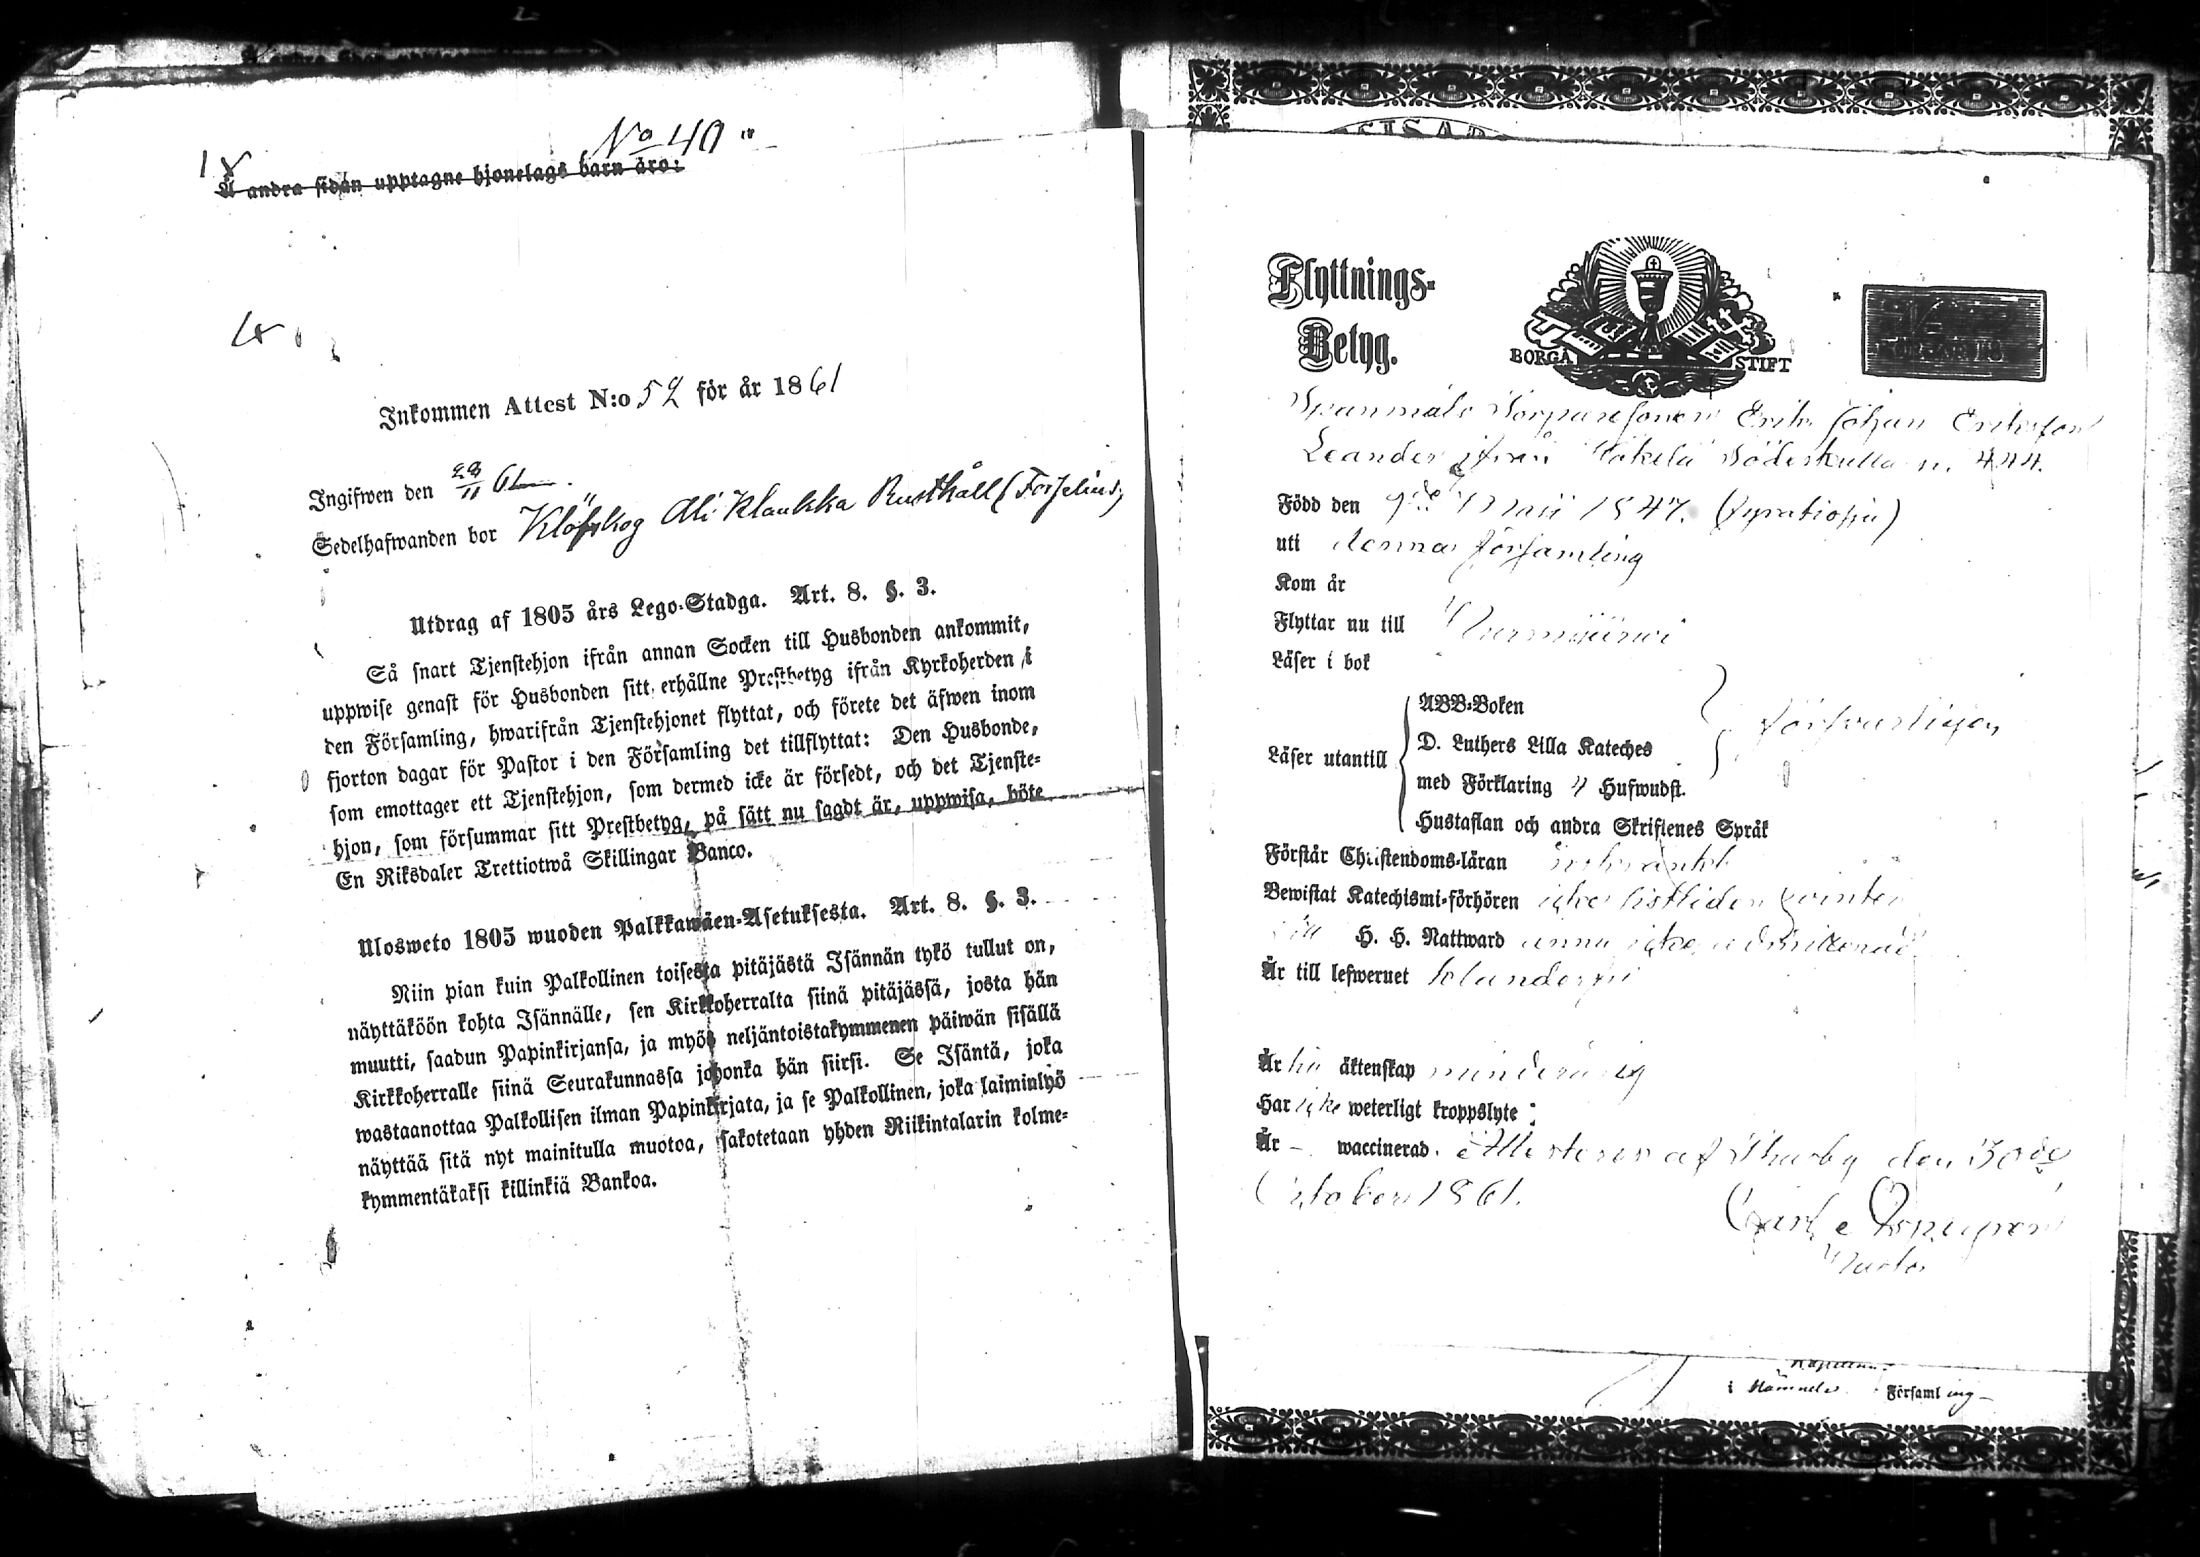 No 40
Å andra sidan upptagne hjonelags barn äro:
Inkommen Attest N:o 52 för år 1861
Ingifwen den 28/11 61
Sedelhafwanden bor Klöfskog Ali Klaukka Rusthåll (Forselius)
Utdrag af 1805 års Lego-Stadga. Art. 8. §. 3.
Så snart Tjenstehjon ifrån annan Socken till Husbonden ankommit,
uppwise genast för Husbonden sitt erhållne Prestbetyg ifrån Kyrkoherden i
den Församling, hwarifrån Tjenstehjonet flyttat, och förete det äfwen inom
fjorton dagar för Pastor i den Församling det tillflyttat: Den Husbonde,
som emottager ett Tjenstehjon, som dermed icke är försedt, och det Tjenste-
hjon, som försummar sitt Prestbetyg, på sätt nu sagdt är, uppwisa, böte
En Riksdaler Trettiotwå Skillingar Banco.
Ulosweto 1805 wuoden Palkkawäen-Asetuksesta. Art. 8. §. 3.
Niin pian kuin Palkollinen toisesta pitäjästä Isännän tykö tullut on,
näyttäköön kohta Isännälle, sen Kirkkoherralta siinä pitäjässä, josta hän
muutti, saadun Papinkirjansa, ja myös neljäntoistakymmenen päiwän sisällä
Kirkkoherralle siinä Seurakunnassa johonka hän siirsi. Se Isäntä, joka
wastaanottaa Palkollisen ilman Papinkirjata, ja se Palkollinen, joka laiminlyö
näyttää sitä nyt mainitulla muotoa, sakotetaan yhden Riikintalarin kolme-
kymmentäkaksi killinkiä Bankoa.
Flyttnings-
Betyg.
BORGÅ STIFT
Torparesonen Erik Johan Eriksson
Leander ifrån Söderkulla n. 444.
Född den 9de Maii 1847.
uti denna församling
Kom år
Flyttar nu till Nurmijärwi
Läser i bok
Läser utantill
ABB-Boken
D. Luthers Lilla Kateches
med Förklaring 4 Hufwudst.
Hustaflan och andra Skriftenes Språk
försvarligen
Förstår Christendoms-läran
Bewistat Katechismi-förhören
H. H. Nattward ännu icke admitterad
Är till lefwernet
Är äktenskap minderårig
Har icke weterligt kroppslyte:
Är – waccinerad. Attesterar af Thusby den 30de
October 1861.
Carl
Pastor
i Församling